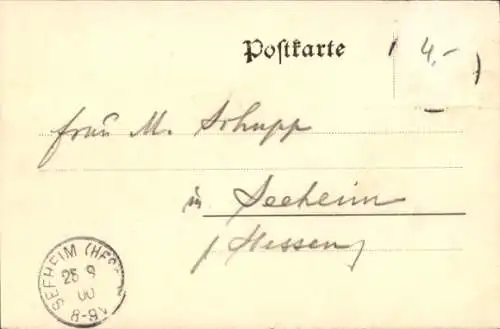 Postkarte
4.-
Frau M. Schupp
in Seeheim
/Hessen/
SEEHEIM (HESSEN)
25 9
00
8-9V